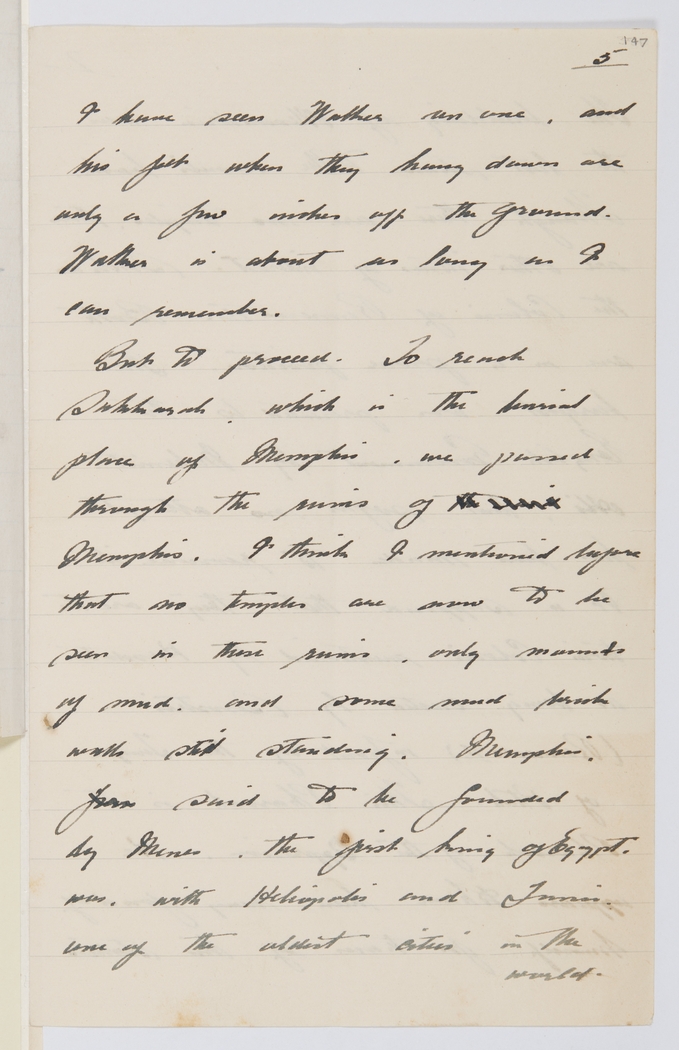 147
5
I have seen Walker on one, and
his feet when they hang down are
only a few inches off the ground.
Walker is about as long as I
can remember.
But to proceed. To reach
Sakkarah, which is the burial
place of Memphis, we passed
through the ruins of
Memphis. I think I mentioned before
that no temples are now to be
seen in these ruins, only mounds
of mud, and some mud brick
walls still standing. Memphis,
said to be founded
by Menes, the first king of Egypt,
was, with Heliopolis and
one of the oldest cities in the
world.